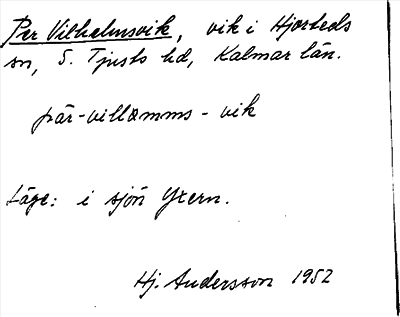 Per Vilhelmsvik, vik i Hjorteds
sn, S. Tjusts hd, Kalmar län.
pär-villamms-vik
Läge: i sjön Yxern.
Hj. Andersson 1952